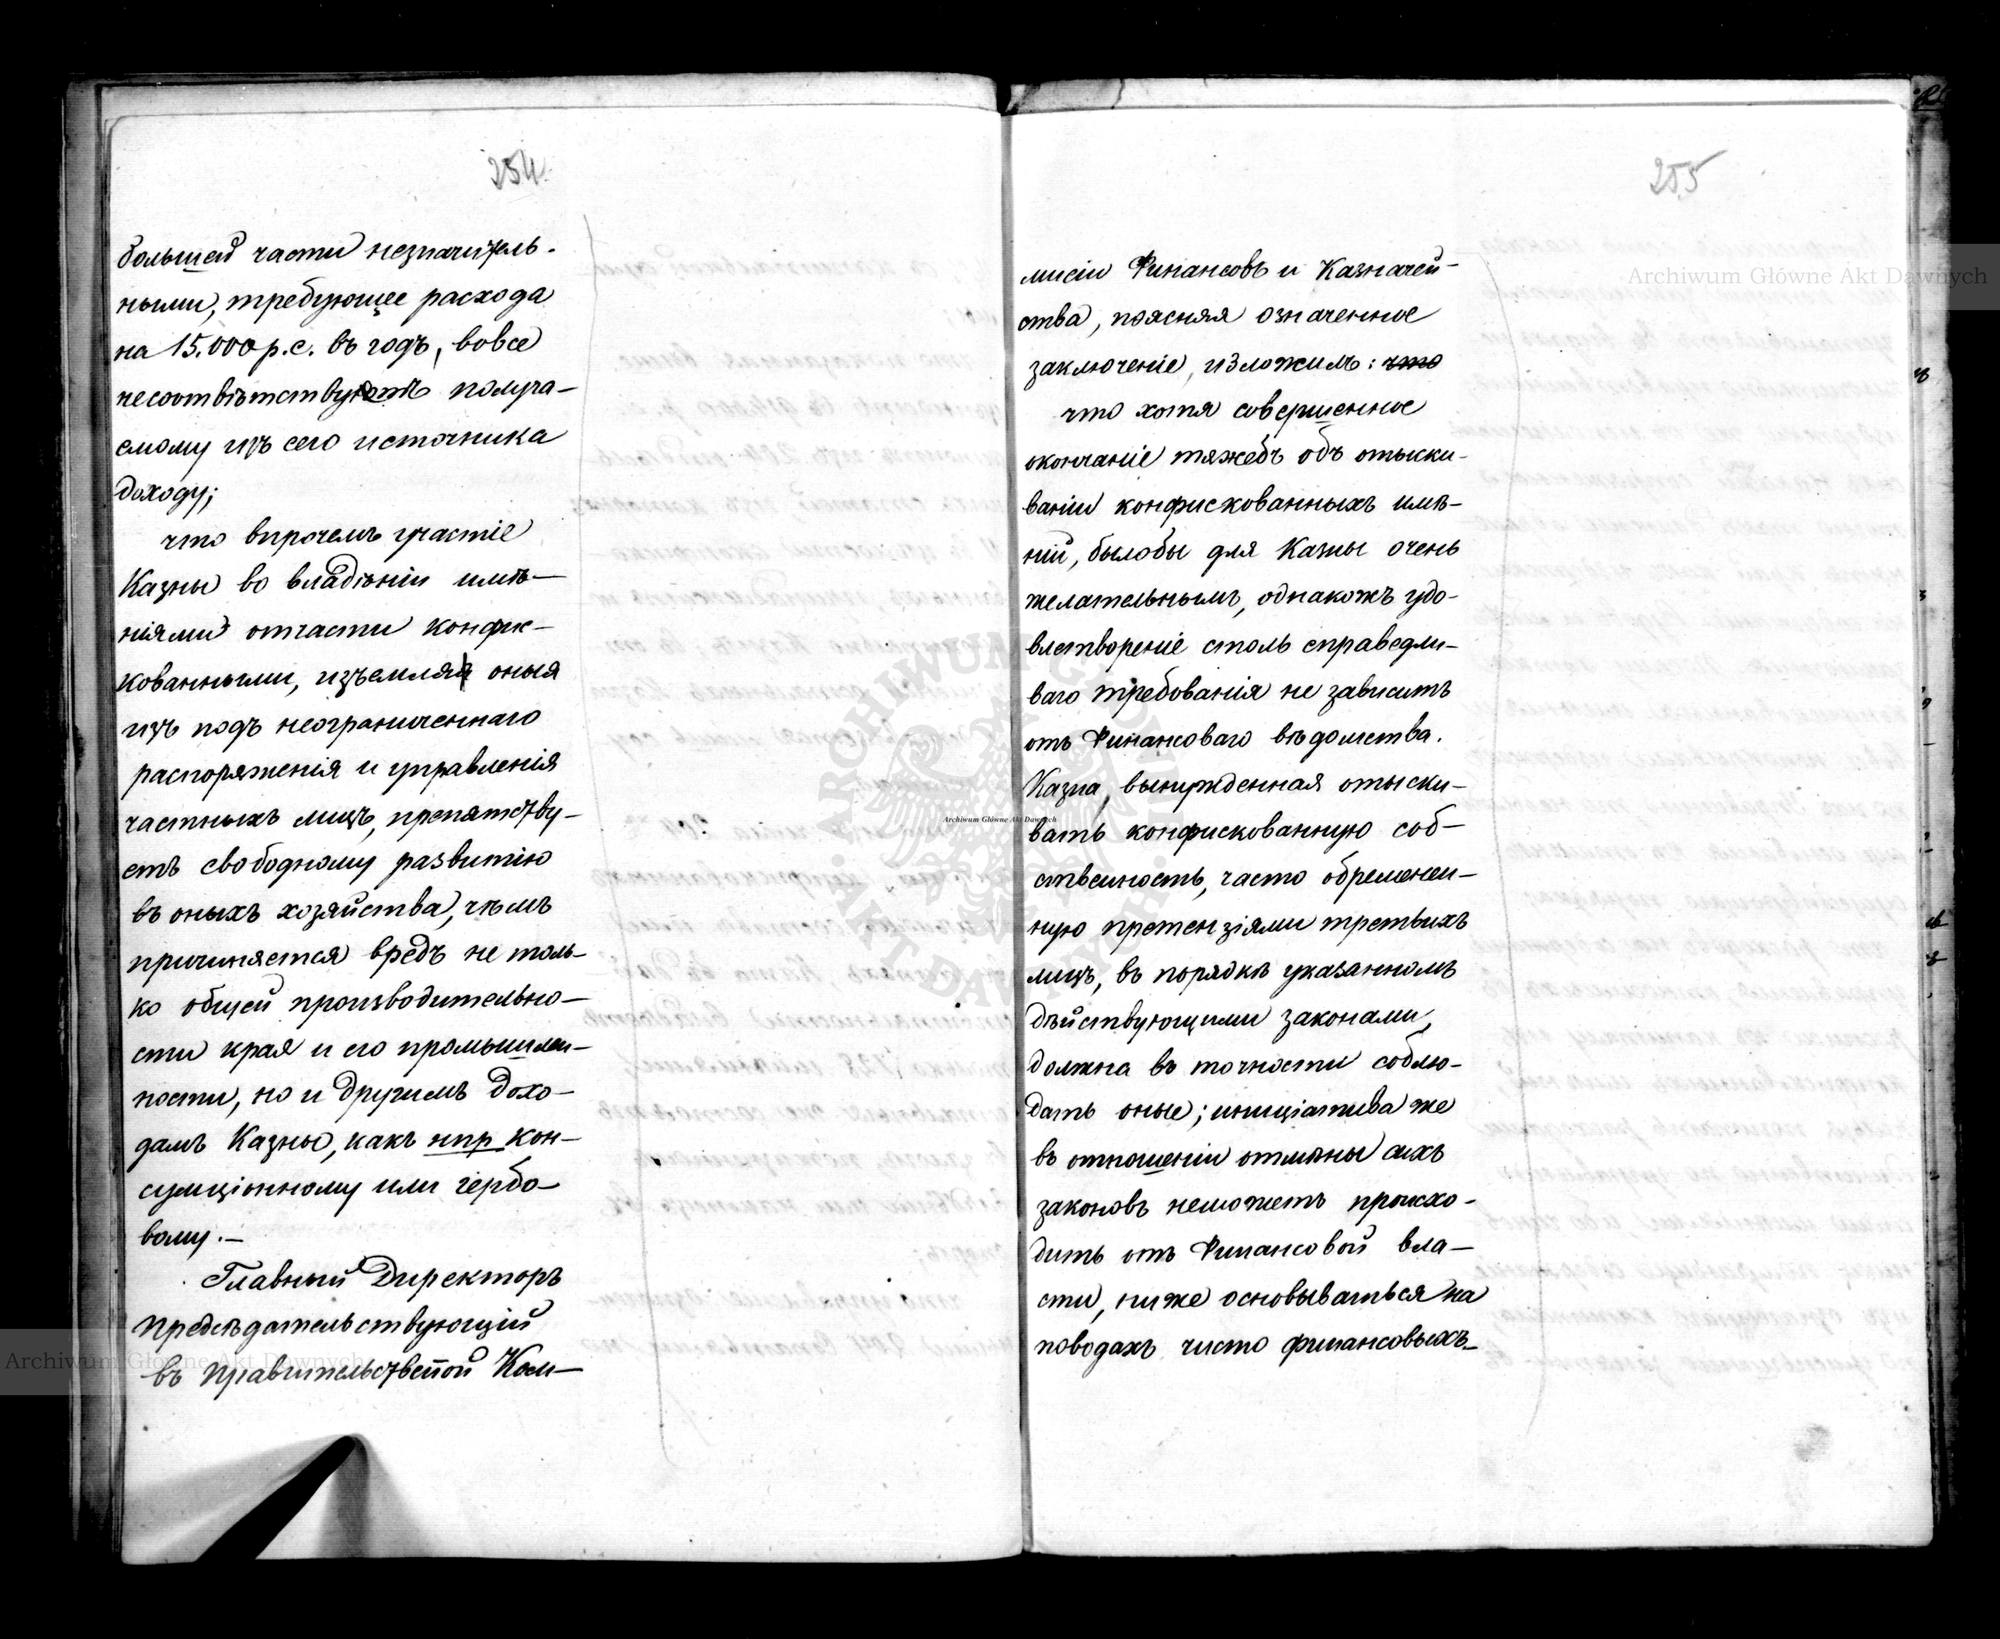 254.
большей части незначитель-
ными, требующее расхода
на 15.000 р. с. въ годъ, вовсе
несоотвѣтствуетъ получа-
емому изъ сего источника
доходу;
что впрочемъ участіе
Казны во владѣніи имѣ-
ніями отчасти конфис-
кованными, изъемляя оныя
изъ подъ неограниченнаго
распоряженія и управленія
частныхъ лицъ, препятству-
етъ свободному развитію
въ оныхъ хозяйства, чѣмъ
причиняется вредъ не толь-
ко общей производительно-
сти края и его промышлен-
ности, но и другимъ дохо-
дамъ Казны, какъ нпр. кон-
сумціонному или гербо-
вому.—
Главный Директоръ
Предсѣдательствующій
въ Правительственной Ком-
255
мисіи Финансовъ и Казначей-
ства, поясняя означенное
заключеніе, изложилъ: что
что хотя совершенное
окончаніе тяжебъ объ отыски-
ваніи конфискованныхъ имѣ-
ній, былобы для Казны очень
желательнымъ, однакожъ удо-
влетвореніе столь справедли-
ваго требованія не зависитъ
отъ Финансоваго вѣдомства.
Казна, вынужденная отыски-
вать конфискованную соб-
ственность, часто обременен-
ную претензіями третьихъ
лицъ, въ порядкѣ указанномъ
дѣйствующими законами,
должна въ точности соблю-
дать оные; иниціатива же
въ отношеніи отмѣны сихъ
законовъ неможетъ происхо-
дить отъ Финансовой вла-
сти, ниже основываться на
поводахъ чисто финансовыхъ.
Archiwum Główne Akt Dawnych
Archiwum Główne Akt Dawnych
Archiwum Główne Akt Dawnych
ARCHIWUM GŁÓWNE AKT DAWNYCH